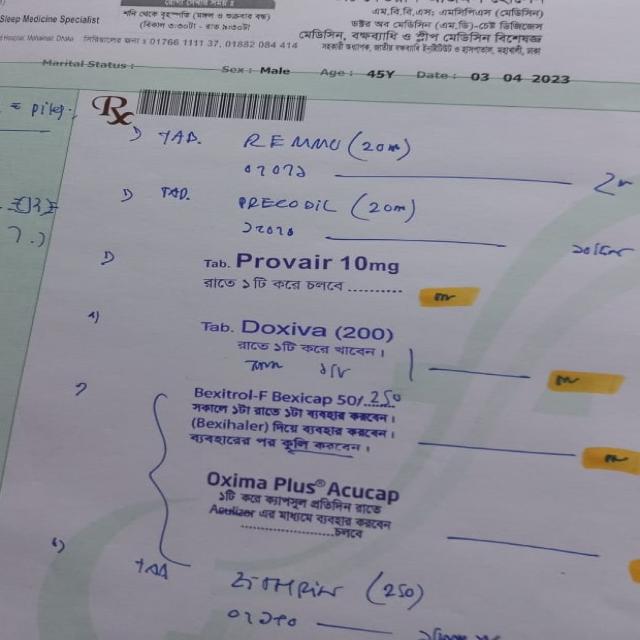 Sleep Medicine Specialist
শনি থেকে বৃহস্পতি (মঙ্গল ও শুক্রবার বন্ধ)
(বিকাল ৩:৩০টা - রাত ৯:৩০টা)
Hospital, Mohakhali, Dhaka সিরিয়ালের জন্য : 01766 1111 37, 01882 084 414
এম.বি.বি.এস; এমসিপিএস (মেডিসিন)
ডক্টর অব মেডিসিন (এম.ডি)-চেষ্ট ডিজিজেস
মেডিসিন, বক্ষব্যাধি ও স্লীপ মেডিসিন বিশেষজ্ঞ
সহকারী অধ্যাপক, জাতীয় বক্ষব্যাধি ইনস্টিটিউট ও হাসপাতাল, মহাখালী, ঢাকা
Marital Status : Sex : Male Age : 45Y Date : 03 04 2023
Rx
TAB. REMMO (20m)
TAB. PRECODIL (20m)
Tab. Provair 10mg
রাতে ১টি করে চলবে ..........
Tab. Doxiva (200)
রাতে ১টি করে খাবেন।
Bexitrol-F Bexicap 50/ 250
সকালে ১টা রাতে ১টা ব্যবহার করবেন।
(Bexihaler) দিয়ে ব্যবহার করবেন।
ব্যবহারের পর কুলি করবেন।
Oxima Plus® Acucap
১টি করে ক্যাপসুল প্রতিদিন রাতে
Aculizer এর মাধ্যমে ব্যবহার করবেন
....................চলবে
(250)